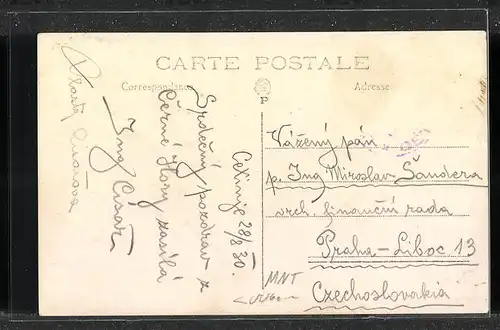 CARTE POSTALE
Correspondance
Adresse
Cetinje 28/8 30.
Srdečný pozdrav z
Černé Hory zasílá
Ing Císař
Císařova
Vážený pán
p. Ing Miroslav Šandera
vrch. finanční rada
Praha - Liboc 13
Czechoslovakia
MNT